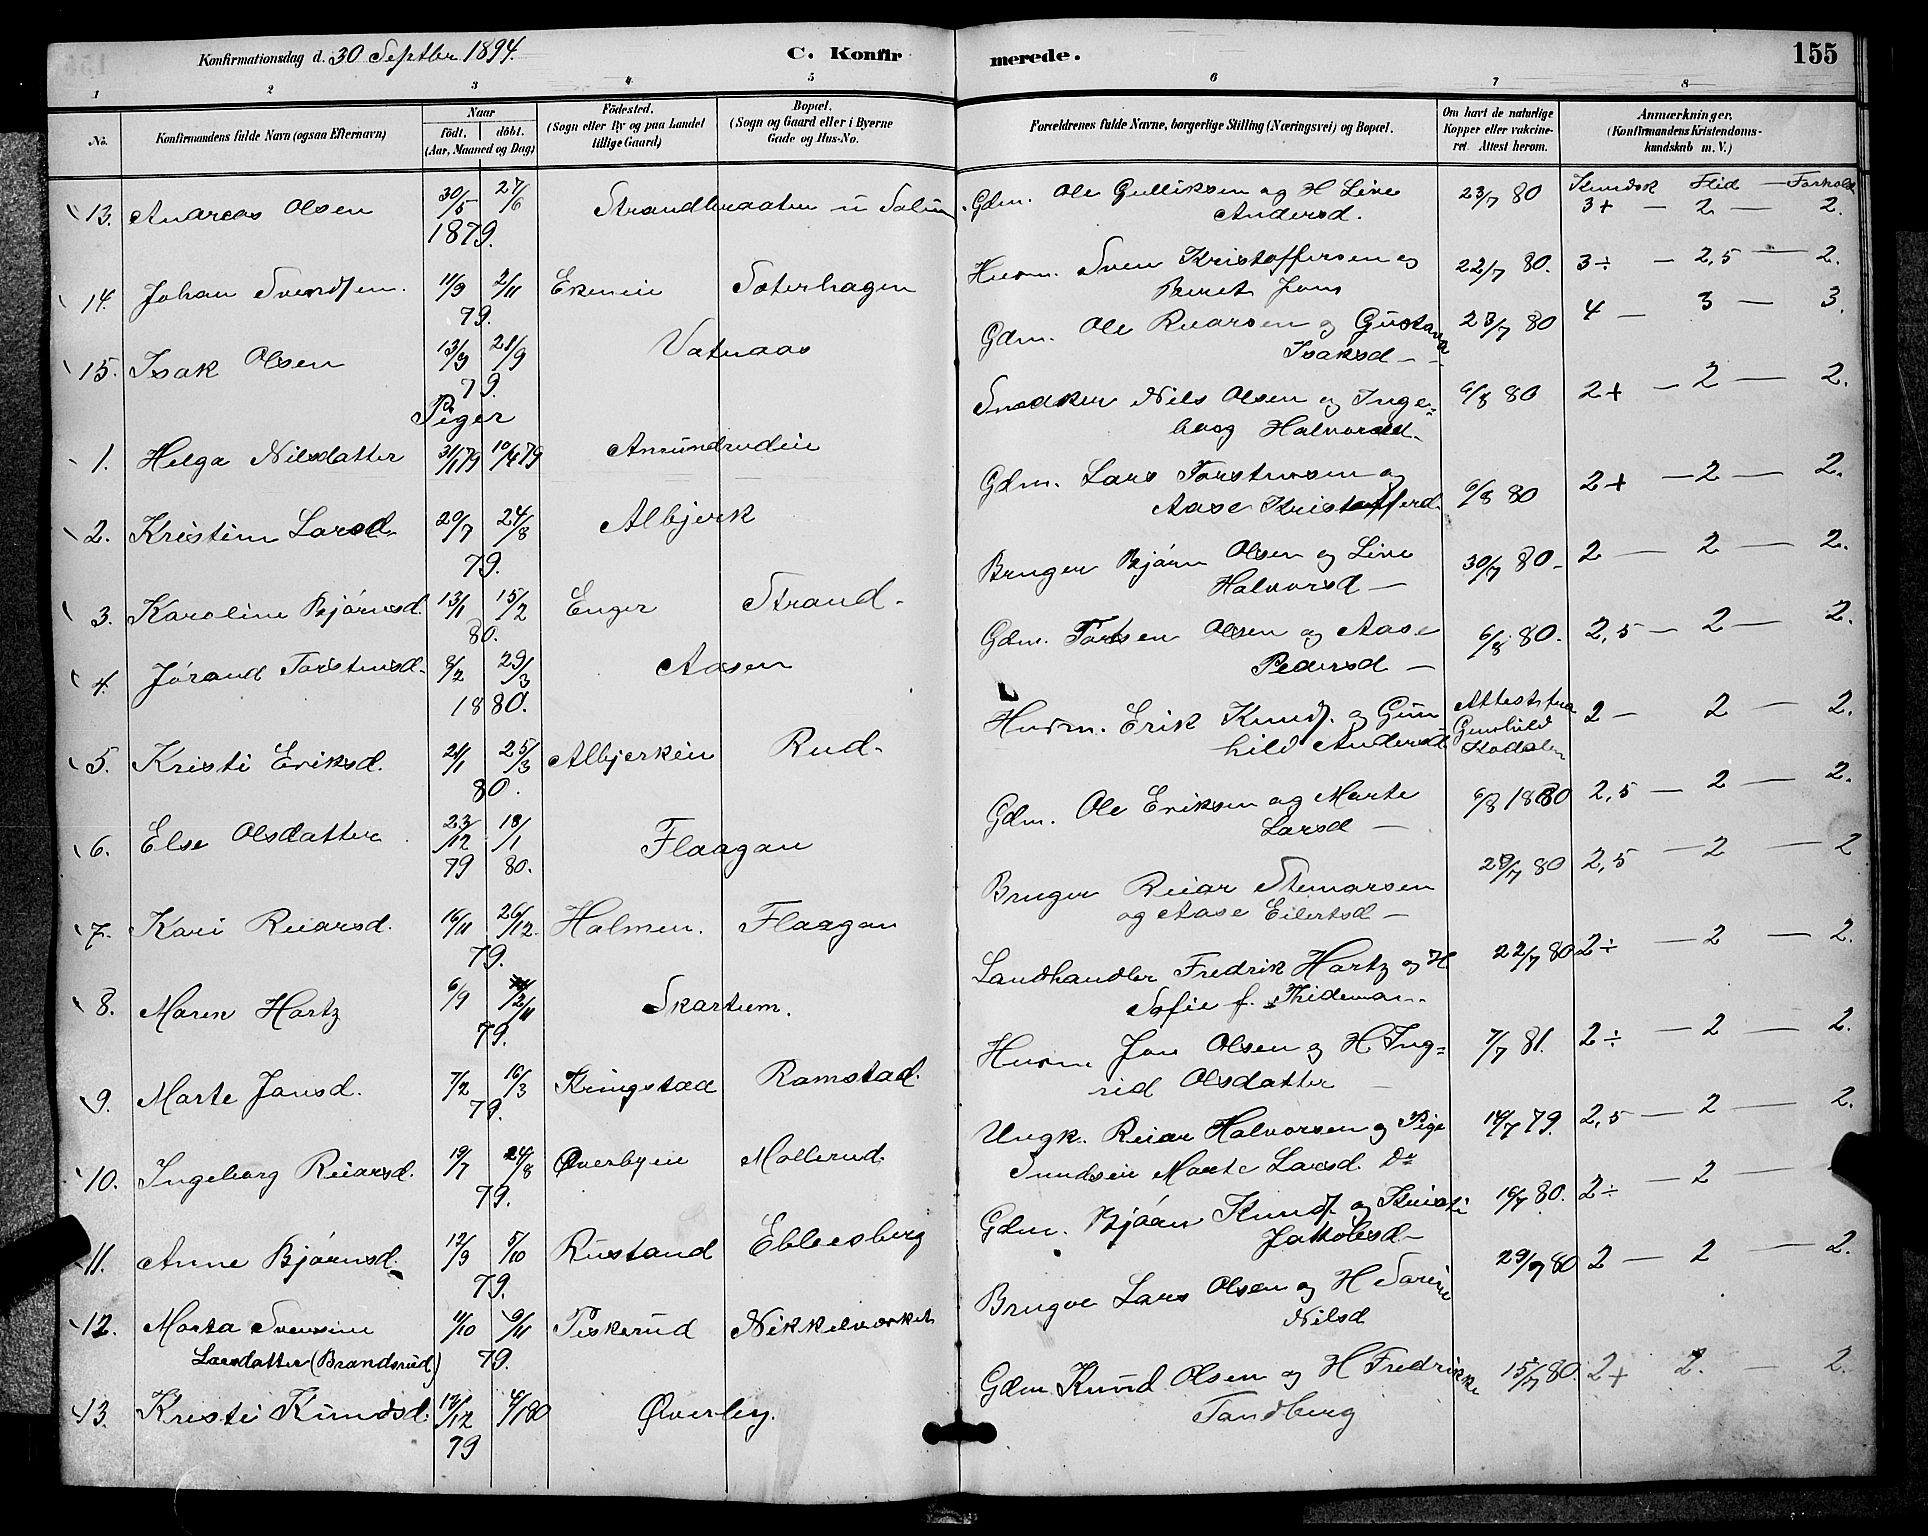 Konfirmationsdag d. 30 Septbr 1894.
C. Konfirmerede.
155
1 2 3 4 5 6 7 8
No.
Konfirmandens fulde Navn (ogsaa Efternavn)
Naar
født. døbt.
(Aar, Maaned og Dag)
Fødested.
(Sogn eller By og paa Landet
tillige Gaard)
Bopæl.
(Sogn og Gaard eller i Byerne
Gade og Hus-No.
Forældrenes fulde Navne, borgerlige Stilling (Næringsvei) og Bopæl.
Om havt de naturlige
Kopper eller vakcine-
ret. Attest herom.
Anmærkninger.
(Konfirmandens Kristendoms-
kundskab m. V.)
Kundsk Flid — Forhold
13. Andreas Olsen 30/5 27/6 Strandbraaten u Solum Gdm. Ole Gulliksen og H Live 23/7 80 3+ — 2 — 2.
1879. Andersd.
14. Johan Svendsen. 11/9 2/11 Ekeneie Soterhagen Husm. Sven Kristoffersen og 22/7 80. 3÷ — 2,5 — 2.
79. Beret Jons
15. Isak Olsen 13/9 21/9 Vatnaas Gdm. Ole Reiarsen og Gustava 23/7 80 4 — 3 — 3.
79. Isaksd —
Piger
1. Helga Nilsdatter 31/1 79 10/4 79 Amundrudeie Snedker Nils Olsen og Inge= 6/8 80 2+ — 2 — 2.
borg Halvorsd.
2. Kristine Larsd. 20/7 24/8 Albjerk Gdm. Lars Torstensen og 6/8 80 2+ — 2 — 2.
79. Aase Kristofferd.
3. Karoline Bjørnsd. 13/1 15/2 Enger Strand. Bruger Bjørn Olsen og Live 30/7 80. 2 — 2 — 2.
80. Halvorsd —
4. Jørand Torstensd. 8/2 29/3 Aasen Gdm. Torsten Olsen og Aase 6/8 80. 2,5 — 2 — 2.
1880. Pedersd —
5. Kristi Eriksd. 21/1 25/3 Albjerkeie Rud. Husm. Erik Knuds. og Gun Attest fra 2 — 2 — 2.
80. hild Andersd Gunhild
6. Else Olsdatter 23/12 18/1 Flaagan Gdm. Ole Eriksen og Marte 6/8 1880 2,5 — 2 — 2.
79 80. Larsd —
7. Kari Reiarsd. 16/11 26/12. Holmen. Flaagan Bruger Reiar Stenarsen 28/7 80 2,5 — 2 — 2
79. og Aase Eilertsd —
8. Maren Hartz 6/9 2/11 Skartum. Landhandler Fredrik Hartz og H 22/7 80 2÷ — 2 — 2.
79. Sofie f. Thideman.
9. Marte Jonsd. 7/2 16/3 Kringstad Ramstad. Husm Jon Olsen og H Ing= 7/7 81. 2÷ — 2 — 2.
79. rid Olsdatter —
10. Ingeborg Reiarsd. 19/7 24/8 Øverbyeie Mollerud. Ungk. Reiar Halvorsen og Pige 14/7 79. 2,5 — 2 — 2.
79. Sundseie Marte Larsd. Do
11. Anne Bjørnsd. 12/9 5/10 Rustand Eblesberg Gdm. Bjørn Knuds. og Kristi 16/7 80. 2÷ — 2 —
79. Jakobsd —
12. Marta Svensine 11/10 9/11 Tiskerud Nikkelværket Bruger Lars Olsen og H Sørine 29/7 80 2 — 2 — 2.
Larsdatter (Brandsrud) 79. Nilsd
13. Kristi Knudsd. 12/12 4/1 80 Øverby. Gdm Knud Olsen og H Fredrikke 15/7 80. 2+ 2. — 2.
79 Tandberg